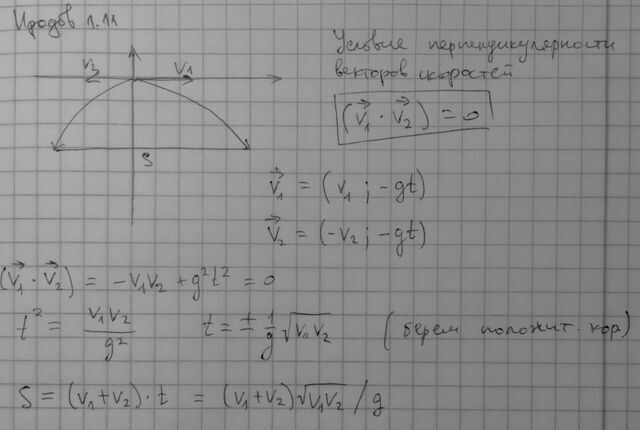 Иродов 1.11
Условие перпендикулярности
векторов скоростей
v₂ v₁
(v⃗₁ · v⃗₂) = 0
S
v⃗₁ = (v₁ ; -gt)
v⃗₂ = (-v₂ ; -gt)
(v⃗₁ · v⃗₂) = -v₁v₂ + g²t² = 0
t² = v₁v₂/g² t = ± 1/g √v₁v₂ (берем положит. кор)
S = (v₁+v₂)·t = (v₁+v₂)√v₁v₂ / g